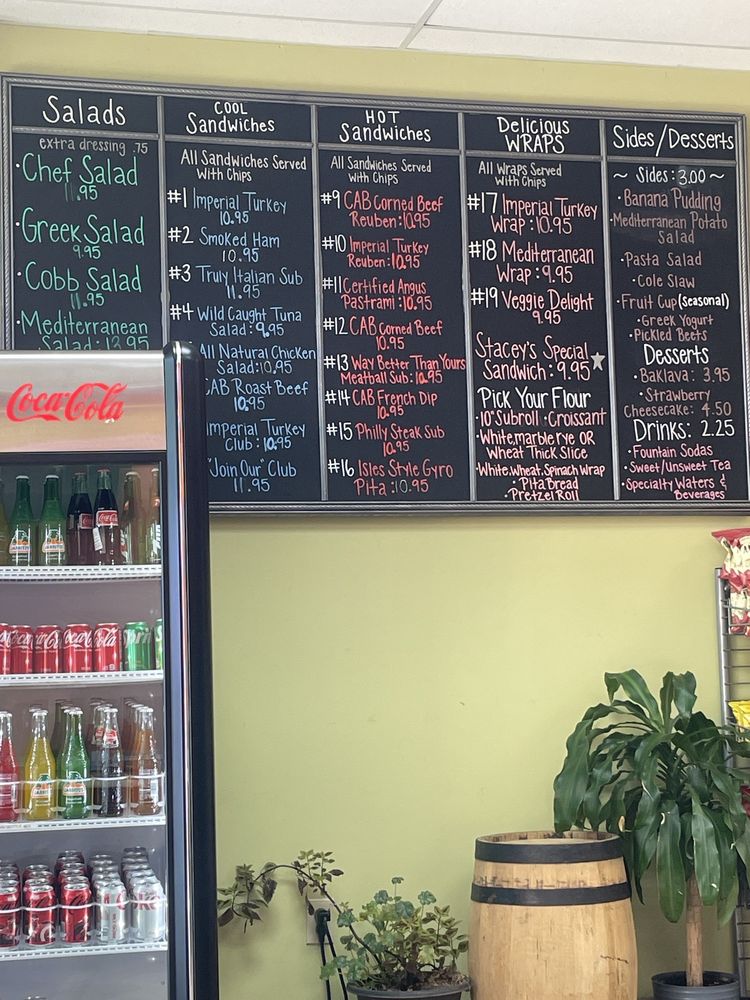 Salads
extra dressing .75
·Chef Salad
11.95
·Greek Salad
9.95
·Cobb Salad
11.95
·Mediterranean
Salad: 13.95
COOL
Sandwiches
All Sandwiches Served
with Chips
#1 Imperial Turkey
10.95
#2 Smoked Ham
10.95
#3 Truly Italian Sub
11.95
#4 Wild Caught Tuna
Salad: 9.95
All Natural Chicken
Salad: 10.95
CAB Roast Beef
10.95
Imperial Turkey
Club: 10.95
"Join Our" Club
11.95
HOT
Sandwiches
All Sandwiches Served
with Chips
#9 CAB Corned Beef
Reuben: 10.95
#10 Imperial Turkey
Reuben: 10.95
#11 Certified Angus
Pastrami: 10.95
#12 CAB Corned Beef
10.95
#13 Way Better Than Yours
Meatball Sub: 10.95
#14 CAB French Dip
10.95
#15 Philly Steak Sub
10.95
#16 Isles Style Gyro
Pita: 10.95
Delicious
WRAPS
All Wraps Served
with Chips
#17 Imperial Turkey
Wrap: 10.95
#18 Mediterranean
Wrap: 9.95
#19 Veggie Delight
9.95
Stacey's Special
Sandwich: 9.95
Pick Your Flour
·10" Subroll ·Croissant
·White, marble rye OR
Wheat Thick Slice
·White, Wheat, Spinach Wrap
·Pita Bread
·Pretzel Roll
Sides/Desserts
~ Sides: 3.00 ~
·Banana Pudding
·Mediterranean Potato
Salad
·Pasta Salad
·Cole Slaw
·Fruit Cup (seasonal)
·Greek Yogurt
·Pickled Beets
Desserts
·Baklava: 3.95
·Strawberry
Cheesecake: 4.50
Drinks: 2.25
·Fountain Sodas
·Sweet/Unsweet Tea
·Specialty Waters &
Beverages
Coca-Cola